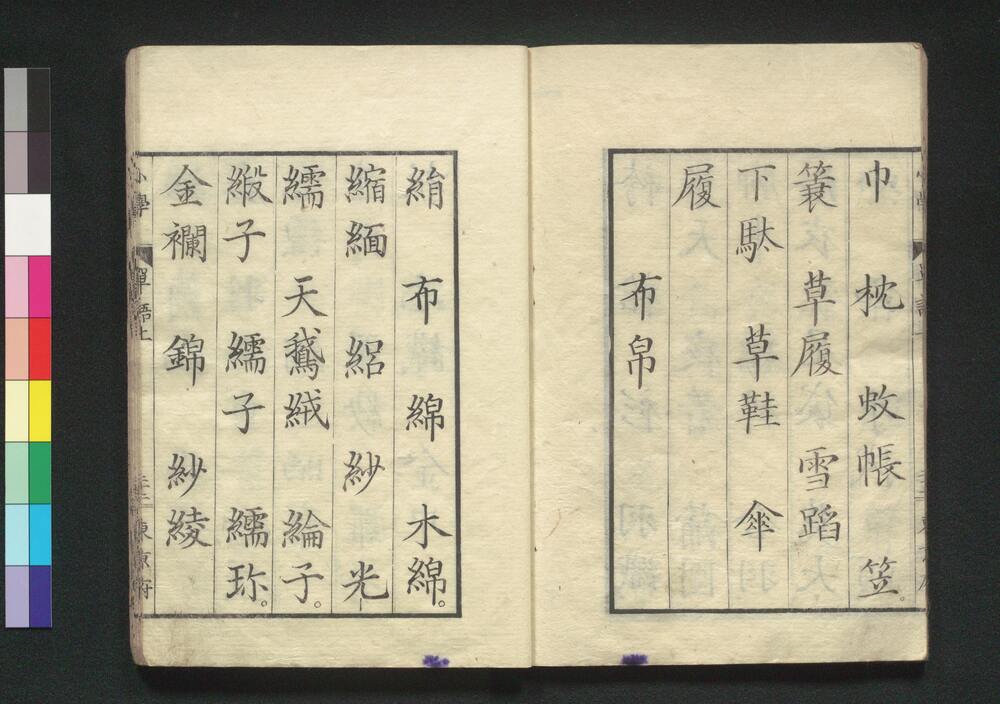 巾 枕 蚊帳 笠。
簑 草履 雪蹈
下駄 草鞋 傘
履
布帛
絹 布 綿 木綿。
縮緬 絽 紗 光
繻 天鵞絨 綸子。
緞子 繻子 繻珎。
金襴 錦 紗綾
小學
單語上
東京府